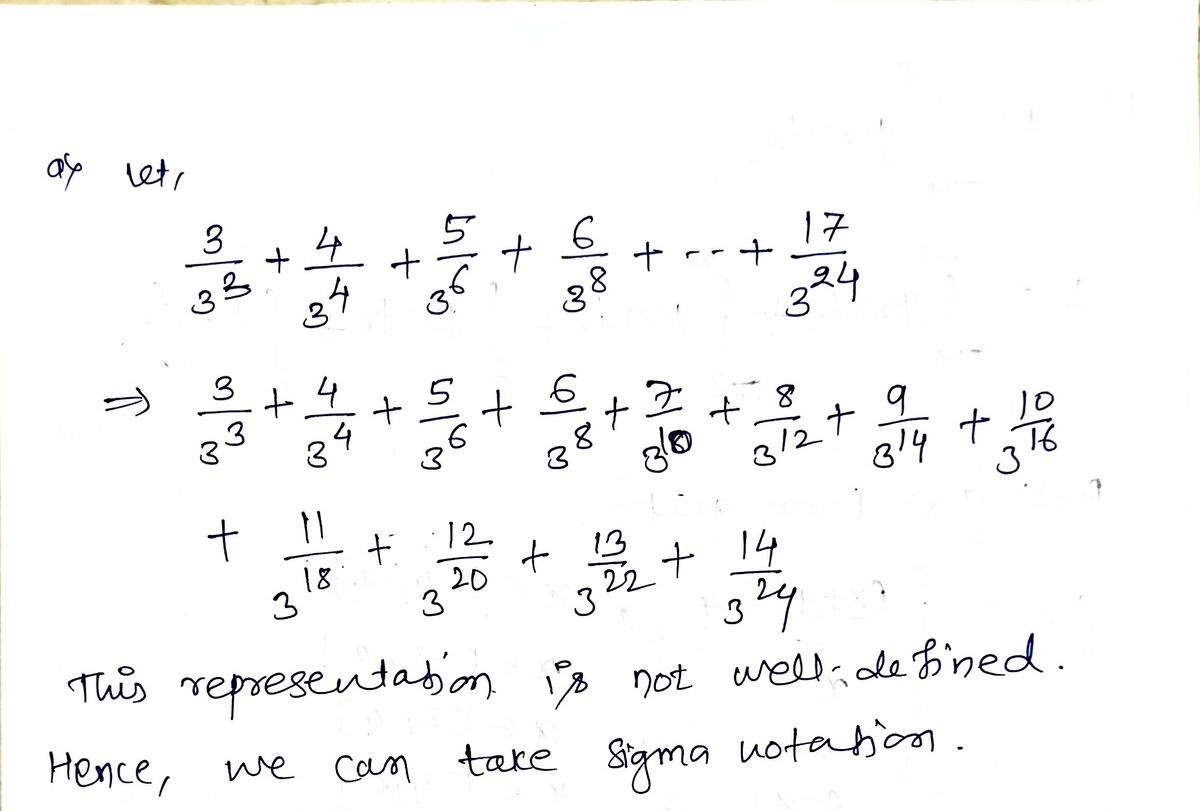 a) let,
3/3^3 + 4/3^4 + 5/3^6 + 6/3^8 + --- + 17/3^24
⇒ 3/3^3 + 4/3^4 + 5/3^6 + 6/3^8 + 7/3^10 + 8/3^12 + 9/3^14 + 10/3^16
+ 11/3^18 + 12/3^20 + 13/3^22 + 14/3^24
This representation is not well-defined.
Hence, we can take sigma notation.